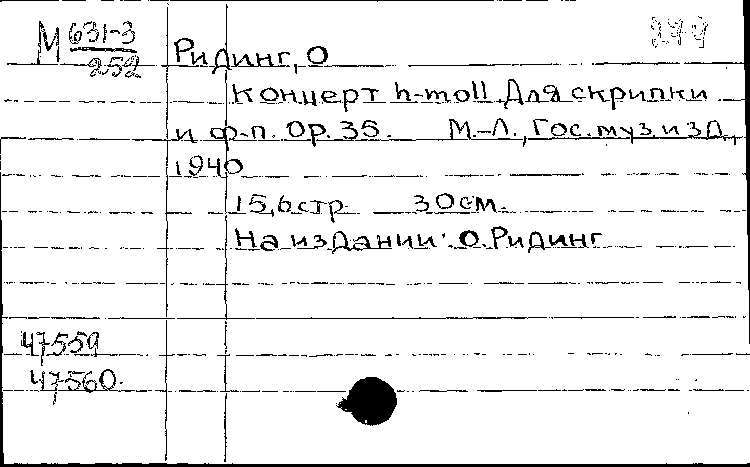 М 631-3
252
Ридинг, О
Концерт h-moll. Для скрипки
и ф-п. Ор. 35. М.-Л., Гос. муз. изд.,
1940
15, 6 стр 30 см.
На издании: О. Ридинг
47559
47560.